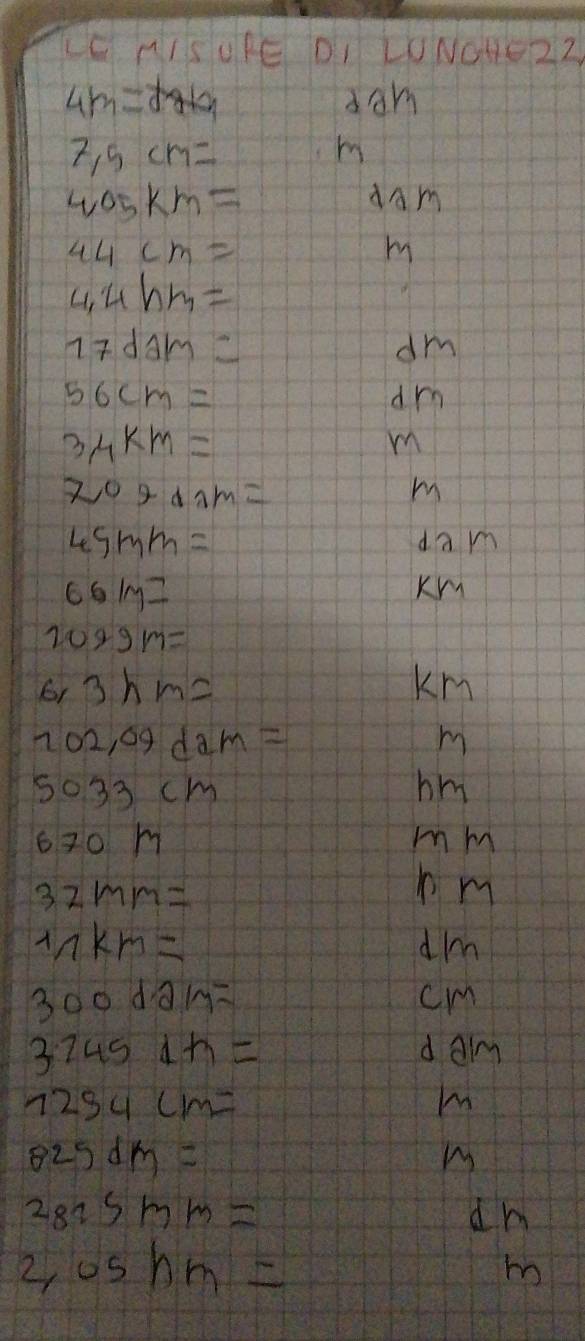 LE MISURE DI LUNGHEZZ
4m= dam
7,5 cm= m
4,05 km= dam
44 cm= m
4,4 hm=
17 dam= dm
56 cm= dm
3,4 km= m
7,09 dam= m
45 mm= dam
66 m= km
1099 m=
6,3 hm= km
102,09 dam= m
5033 cm hm
670 m mm
32 mm= hm
11 km= dm
300 dam= cm
3745 dm= dam
1294 cm= m
825 dm= m
2815 mm= dm
2,05 hm= m